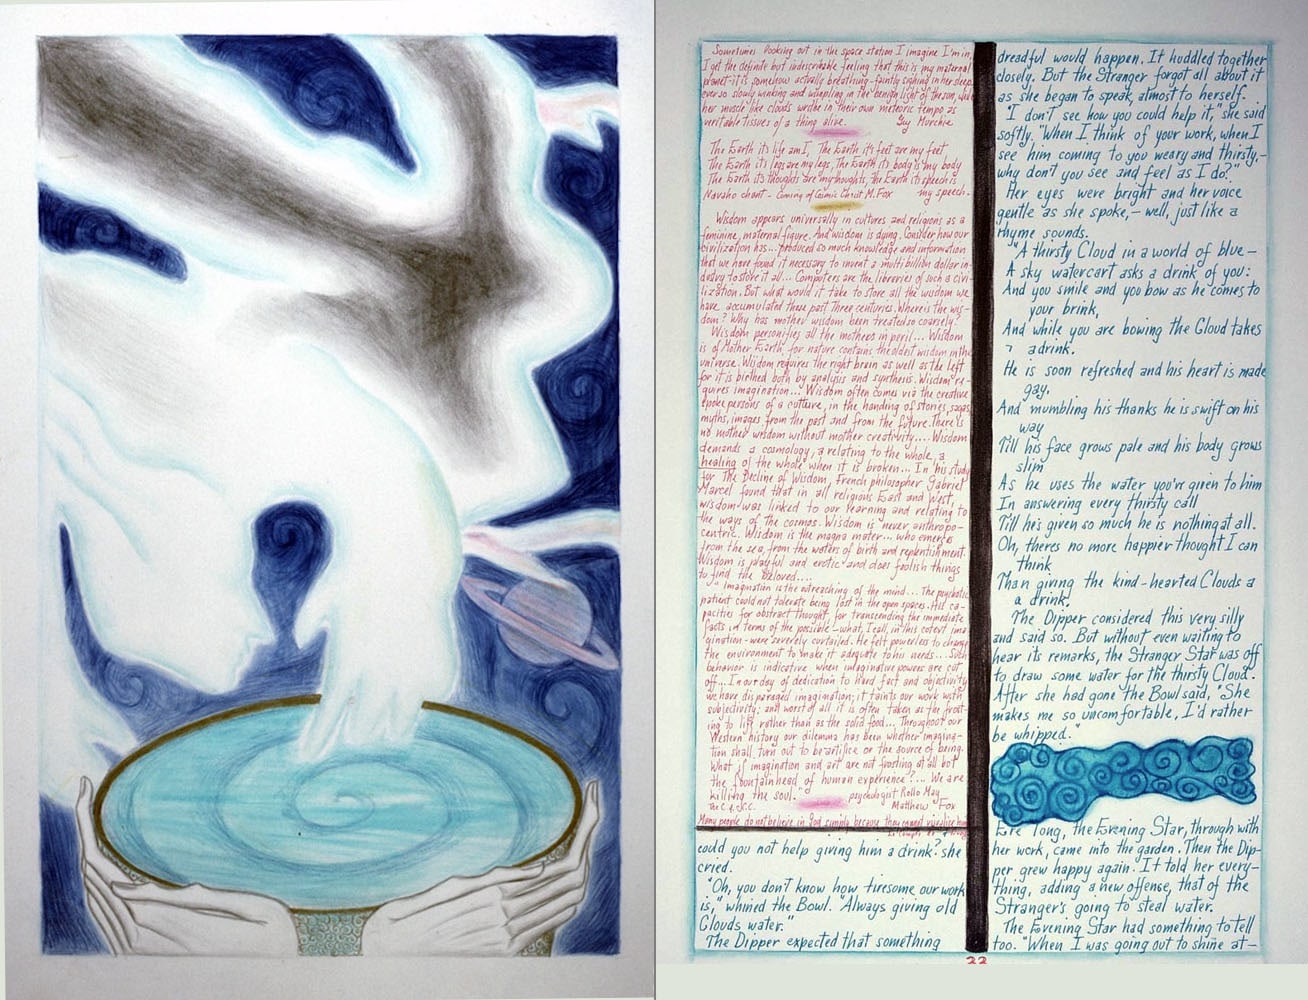 Sometimes looking out in the space station I imagine I'm in,
I get the definite but indescribable feeling that this is my maternal
planet-it is somehow actually breathing-faintly sighing in her sleep
ever so slowly winking and wimpling in the benign light of the sun, while
her muscle like clouds writhe in their own meteoric tempo as
veritable tissues of a thing alive. Guy Murchie
The Earth its life am I, The Earth its feet are my feet
The Earth its legs are my legs, The Earth its body is my body
The Earth its thoughts are my thoughts, the Earth its speech is
Navaho chant - Coming of Cosmic Christ M. Fox my speech.
Wisdom appears universally in cultures and religions as a
feminine, maternal figure. And wisdom is dying. Consider how our
civilization has... produced so much knowledge and information
that we have found it necessary to invent a multibillion dollar in-
dustry to store it all... Computers are the libraries of such a civi-
lization. But what would it take to store all the wisdom we
have accumulated these past three centuries. Where is the wis-
dom? Why has mother wisdom been treated so coarsely?
Wisdom personifies all the mothers in peril... Wisdom
is of Mother Earth, for nature contains the oldest wisdom in the
universe. Wisdom requires the right brain as well as the left
for it is birthed both by analysis and synthesis. Wisdom re-
quires imagination... Wisdom often comes via the creative
spokepersons of a culture, in the handing of stories, sagas,
myths, images from the past and from the future. There is
no mother wisdom without mother creativity.... Wisdom
demands a cosmology, a relating to the whole, a
healing of the whole when it is broken... In his study
for The Decline of Wisdom, French philosopher Gabriel
Marcel found that in all religions East and West,
wisdom was linked to our learning and relating to
the ways of the cosmos. Wisdom is never anthropo-
centric. Wisdom is the magna mater... who emerges
from the sea, from the waters of birth and replenishment.
Wisdom is playful and erotic and does foolish things
to find the beloved....
"Imagination is the outreaching of the mind... The psychotic
patient could not tolerate being lost in the open spaces. His ca-
pacities for abstract thought, for transcending the immediate
facts in terms of the possible-what, I call, in this context ima
gination-were severely curtailed. He felt powerless to change
the environment to make it adequate to his needs... Such
behavior is indicative when imaginative powers are cut
off... In our day of dedication to hard fact and objectivity
we have disparaged imagination; it taints our work with
subjectivity; and worst of all it is often taken as the frost-
ing to life rather than as the solid food... Throughout our
Western history our dilemma has been whether imagina-
tion shall turn out to be artifice or the source of being.
What if imagination and art are not frosting at all but
the fountainhead of human experience?... We are
killing the soul." psychologist Rollo May
The C.o.C.C. Matthew Fox
Many people do not believe in God simply because they cannot visualize him
could you not help giving him a drink? she
cried.
"Oh, you don't know how tiresome our work
is," whined the Bowl. "Always giving old
Clouds water."
The Dipper expected that something
dreadful would happen. It huddled together
closely. But the Stranger forgot all about it
as she began to speak, almost to herself.
"I don't see how you could help it," she said
softly, "when I think of your work, when I
see him coming to you weary and thirsty,-
why don't you see and feel as I do?"
Her eyes were bright and her voice
gentle as she spoke,- well, just like a
rhyme sounds.
"A thirsty Cloud in a world of blue-
A sky watercart asks a drink of you:
And you smile and you bow as he comes to
your brink,
And while you are bowing the Cloud takes
a drink.
He is soon refreshed and his heart is made
gay.
And mumbling his thanks he is swift on his
way
Till his face grows pale and his body grows
slim
As he uses the water you've given to him
In answering every thirsty call
Till he's given so much he is nothing at all.
Oh, theres no more happier thought I can
think
Than giving the kind-hearted Clouds a
a drink.
The Dipper considered this very silly
and said so. But without even waiting to
hear its remarks, the Stranger Star was off
to draw some water for the thirsty Cloud.
After she had gone the Bowl said, "She
makes me so uncomfortable, I'd rather
be whipped."
Ere long, the Evening Star, through with
her work, came into the garden. Then the Dip-
per grew happy again. It told her every-
thing, adding a new offense, that of the
Stranger's going to steal water.
The Evening Star had something to tell
too. "When I was going out to shine at-
33